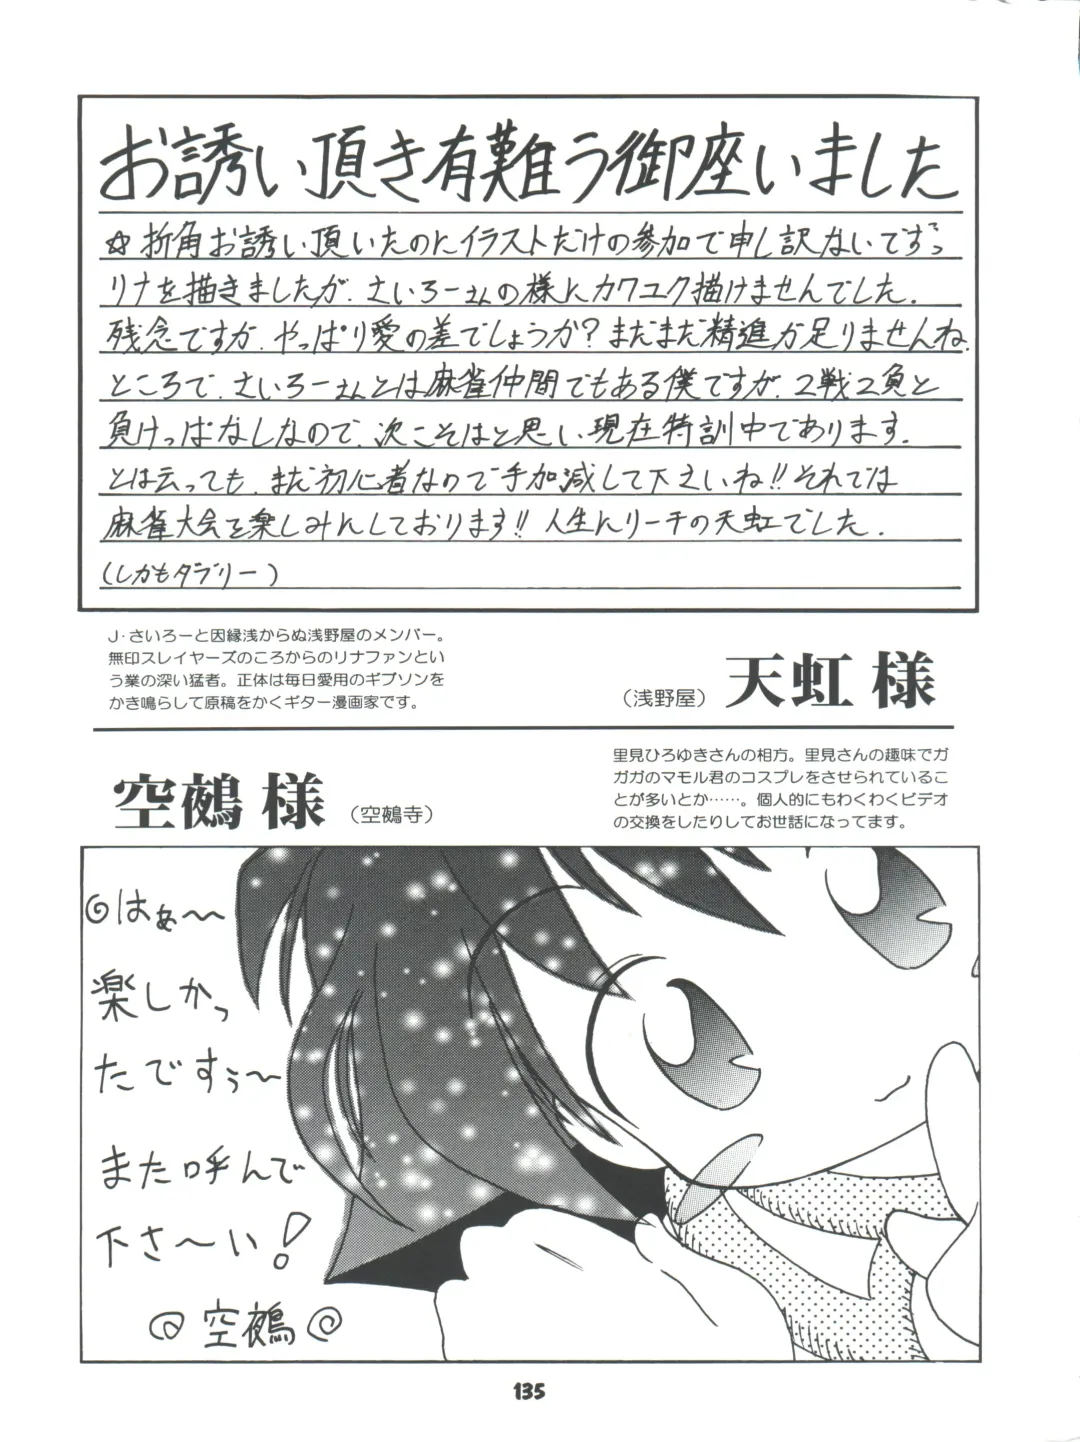 お誘い頂き有難う御座いました
☆折角お誘い頂いたのにイラストだけの参加で申し訳ないですっ
リナを描きましたが、さいろーさんの様にカワユク描けませんでした。
残念ですが、やっぱり愛の差でしょうか?まだまだ精進が足りませんね。
ところで、さいろーさんとは麻雀仲間でもある僕ですが、2戦2負と
負けっぱなしなので、次こそはと思い現在特訓中であります。
とは云っても、まだ初心者なので手加減して下さいね!!それでは
麻雀大会を楽しみんしております!!人生んリーチの天虹でした。
(しかもダブリー)
J・さいろーと因縁浅からぬ浅野屋のメンバー。
無印スレイヤーズのころからのリナファンとい
う業の深い猛者。正体は毎日愛用のギブソンを
かき鳴らして原稿をかくギター漫画家です。
(浅野屋) 天虹 様
空鵺 様 (空鵺寺)
里見ひろゆきさんの相方。里見さんの趣味でガ
ガガのマモル君のコスプレをさせられているこ
とが多いとか……。個人的にもわくわくビデオ
の交換をしたりしてお世話になってます。
はぁ〜
楽しかっ
たですぅ〜
また呼んで
下さ〜い!
空鵺
135